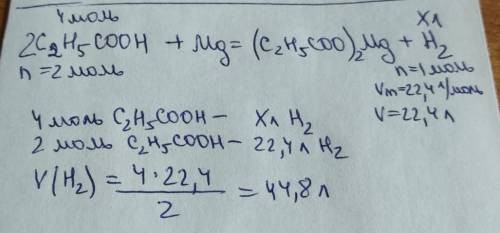 4 моль Xл
2C₂H₅COOH + Mg = (C₂H₅COO)₂Mg + H₂
n = 2 моль n = 1 моль
Vm = 22,4 л/моль
V = 22,4 л
4 моль C₂H₅COOH – Xл H₂
2 моль C₂H₅COOH – 22,4 л H₂
V(H₂) = 4·22,4 / 2 = 44,8 л